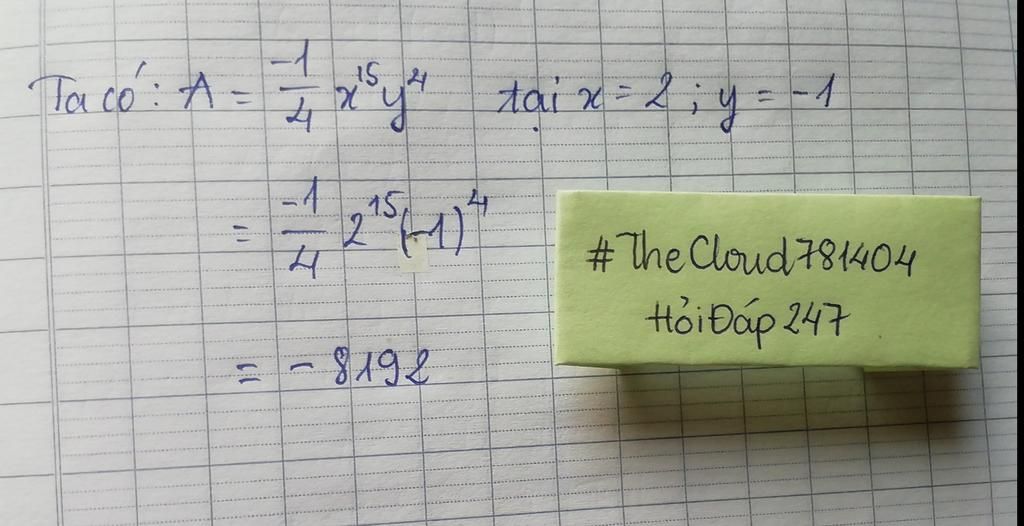 Ta có: A = -1/4 x¹⁵y⁴ tại x = 2 ; y = -1
= -1/4 2¹⁵(-1)⁴
= - 8192
#TheCloud781404
HỏiĐáp 247